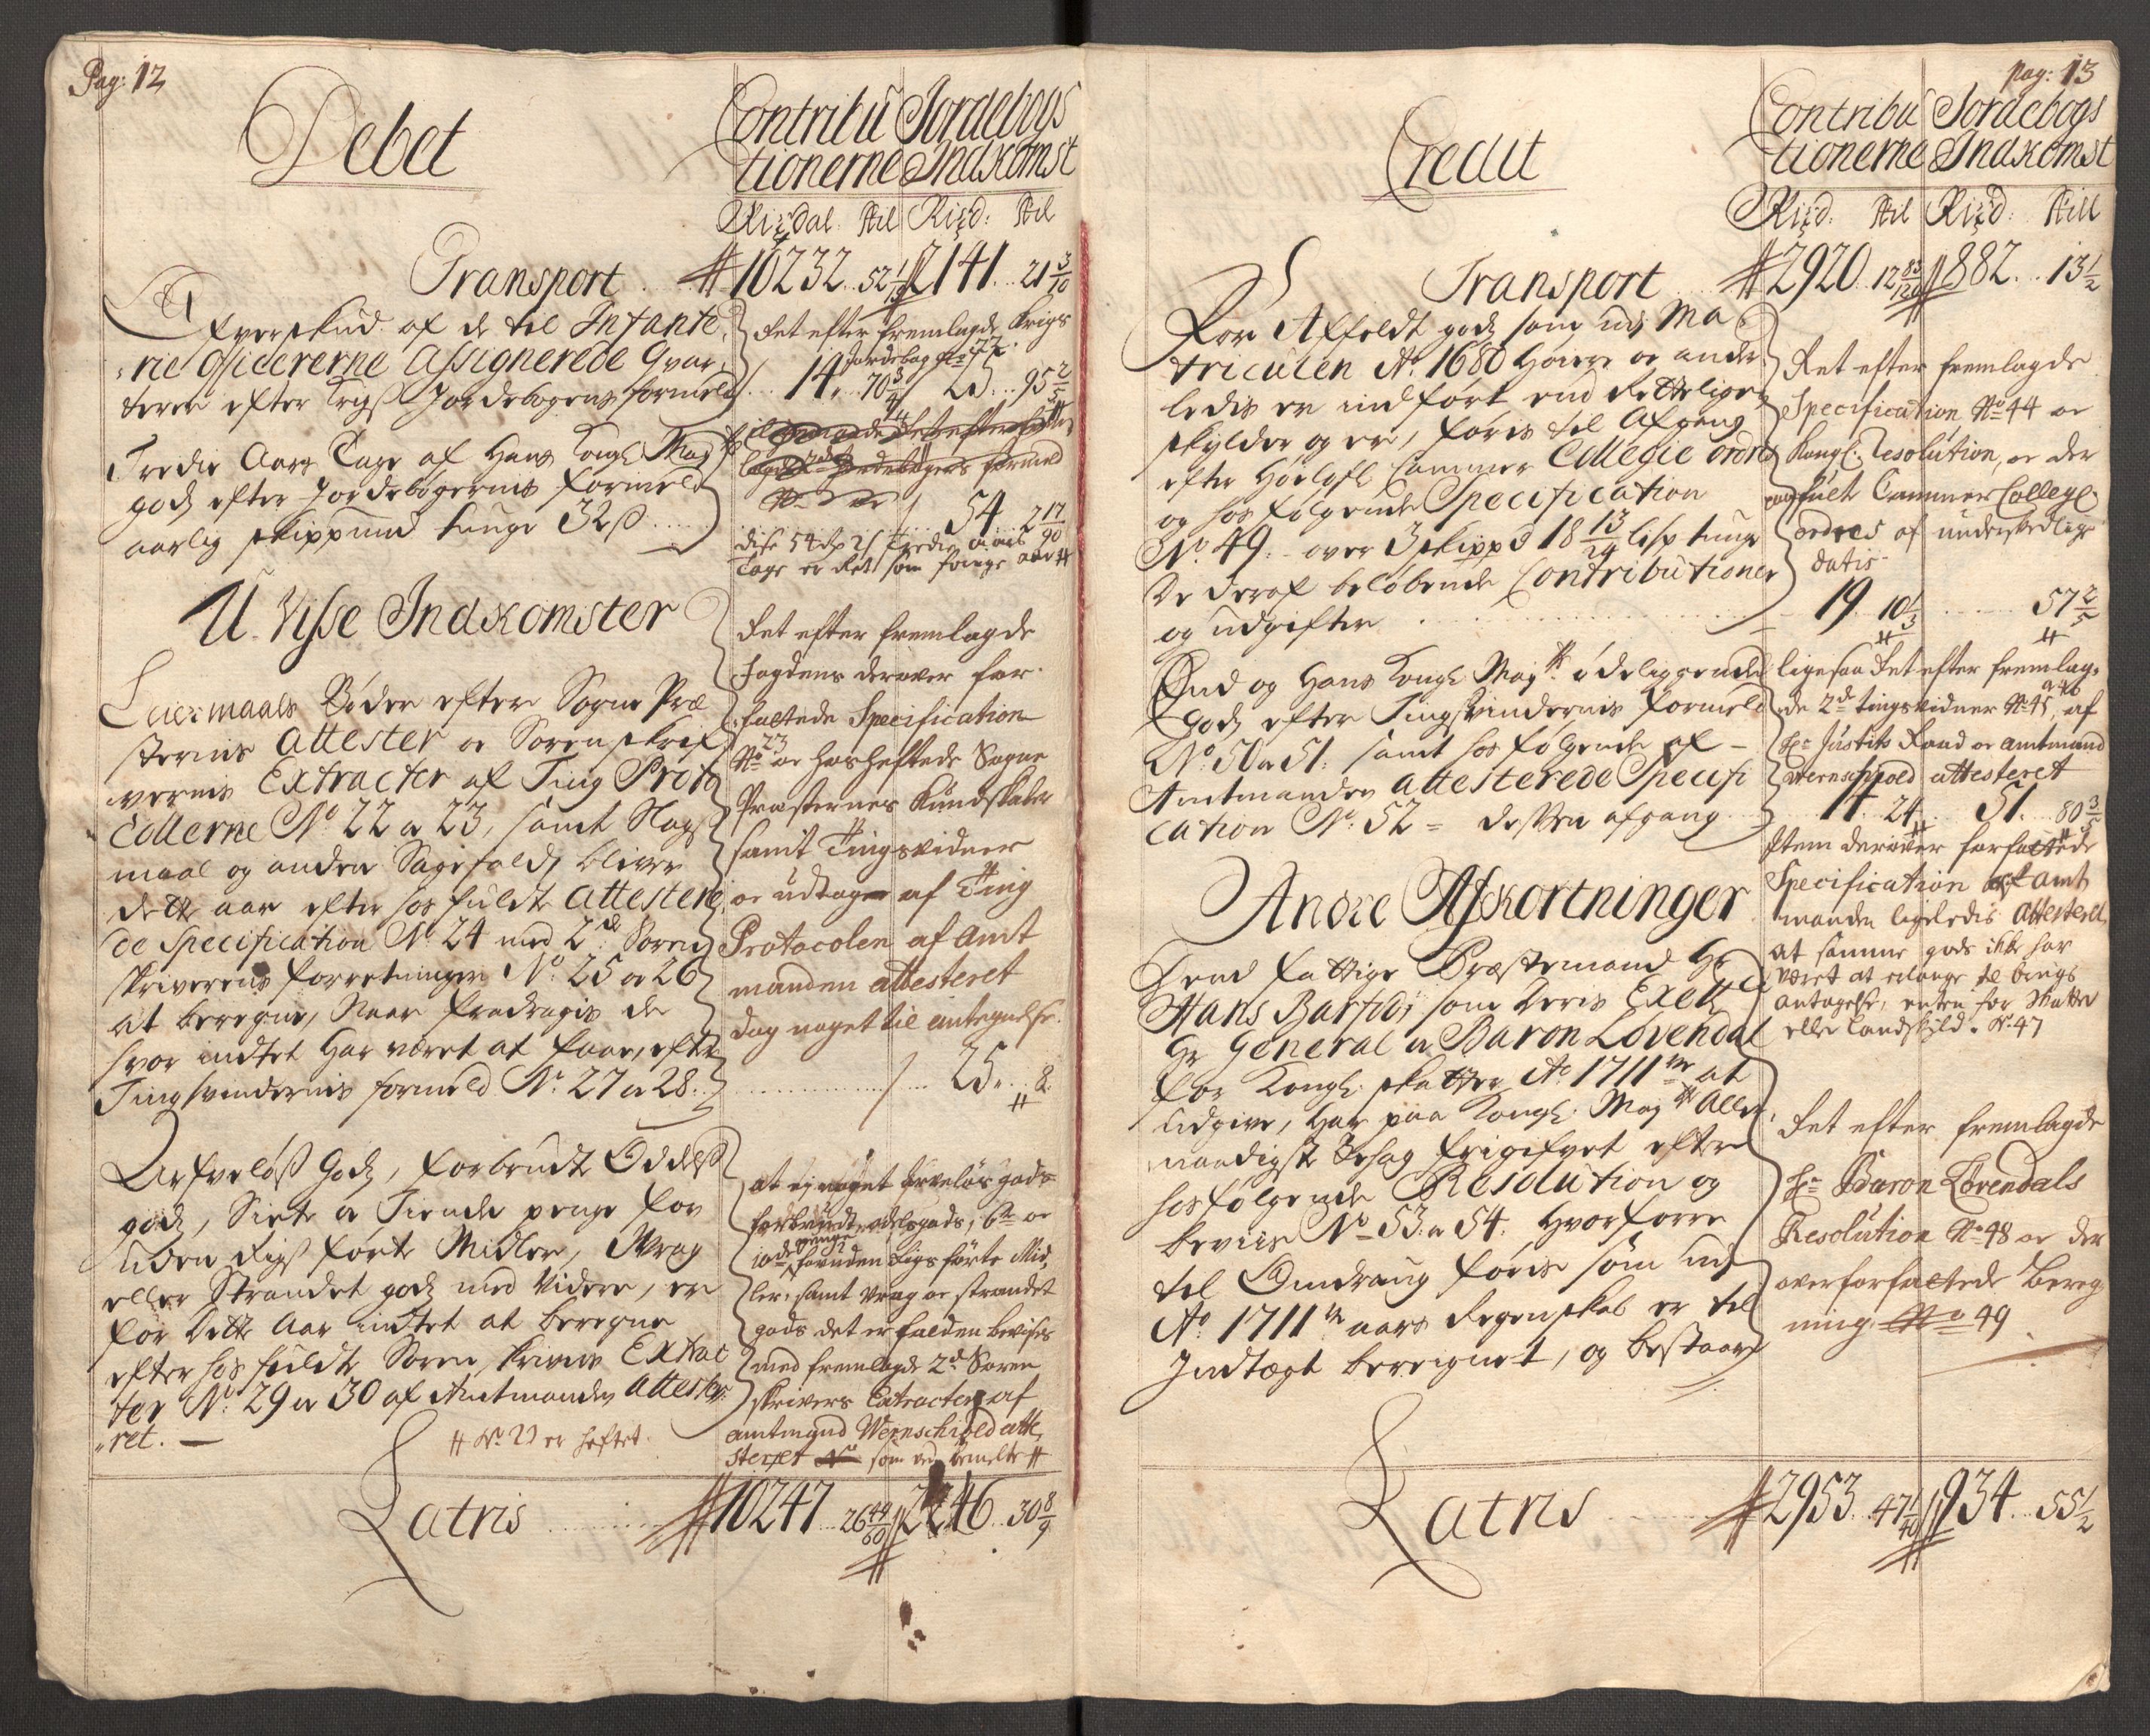 Pag: 12
Debet
Contribu Jordebogs
tionerne Indkomst
Rixdal. skil Rixd: skil
Transport . . # 10232. 52 1/10 2141. 21 3/10
Ofverskud af de til Infante,
rie Officererne Assignerede Qvar
terer efter Krigs Jordebogens formeld
Ret efter fremlagde Krigs
Jordebog
14. 70 3/4 25. 95 2/5
Tredie Aars Tage af Hans Kongl. Maj.ts
godz efter Jordebøgernis formeld
aarlig skippund tunge 32 ß
54. 2 17/90
disse 54 2 ß Tredie aars
Tage er Ret som forige aar #
U Visse Indkomster
Leiermaals Bøder efter Sogne Præ
sternis Attester oc Sorenskrif
vernis Extracter af Ting Proto
Collerne No. 22 a 23, samt Slags
maal og anden Sagefald, bliver
dette aar efter hosfuldte Attestere
de Specification No. 24 med 2de Soren
skriverens forretninger No. 25 oc 26
at beregne, Naar fradragis de
hvor indtet har været at faae, efter
Tingsvindernis formeld No. 27 a 28.
Ret efter fremlagde
fogdens derover for,
fattede Specification
No 23 oc hosheftede Sogne
Præsternes Kundskaber
samt Tingsvidner
oc udtoger af Ting
Protocolen af Amt
manden attesteret
dog noget til antegnelse.
25. 8
Arfveløß Godz, forbrudt Odelß
godz, Siete a Tiende penge for
uden Rigs førte Midler, Wrag
eller Strandet godz med Videre, er
for dette Aar indtet at beregne
efter hosfuldte Soren Krivers Extrac
ter No. 29 a 30 af Amtmanden Atteste
ret. —
# No. 22 er heftet
at ej noget arveløs gods
forbrudt odelsgods, 6te oc
10de penge foruden Rigs førte Mid,
ler, samt vrag oc strandet
gods det er falden bevises
med fremlagde 2de Soren
skrivers Extracter af
amtmand Wernschiold atte
steret No som ved bemelte #
Latris . . . # 10247. 26 49/60 2246. 30 8/9
pag: 13
Credit
Contribu Jordebogs
tionerne Indkomst
Rixd. skil Rixd: skill
Transport # 2920. 12 83/120 882. 13 1/2
For Affeldt godz som udj Ma
triculen Ao. 1680 høiere oc ander
ledis er indført end Rettelig
skylder, og er, føris til Afgang
efter Høylofl. Cammer Collegie ordre
og hos følgende Specification
No. 49. over 3 skippd 18 13/24 lisp tunge
De deraf beløbende Contributioner
og udgifter
Ret efter fremlagde
Specification No 44 oc
Kongl. Resolution, oc der
paafult Cammer Collegl.
ordres af underskedlige
datis
19. 10 1/3 57 2/5
End og Hans Kongl. Maj.ts ødeliggende
godz efter Tingsvindernis formeld
No. 50 a 51. samt hos følgende af
Amtmanden attesterede Specifi
cation No. 52 = dessen afgang
ligesaa Ret efter fremlag,
de 2de tingsvidner No 45 a 46, af
Hr Justits Raad oc amtmand
Wernschiold attesteret
14. 24 51. 80 3/5
Item derover forfattede
Specification af amt
manden ligeledis attesteret,
at samme gods ikke har
været at erlange til bøxls
antagelse, enten for skatter
eller landskyld. No. 47
Andre Afkortninger
Dend fattige Præstemand Hr
Hans Barfod, som Deris Excell.
Hr General a Baron Løvendal
for Kongl. skatter Ao 1711 at
udgive, har paa Kongl. Maj.ts Aller
naadigste Behag frigifvet efter
hosfølgende Resolution og
beviis No 53 a 54. Hvorforre
til Omdraug føris som udj
Ao. 1711 aars Regenskab er til
Indtægt beregnet, og bestaar
Ret efter fremlagde
Hr Baron Løvendals
Resolution No 48 oc der
over forfattede bereg
ning No 49
Latris . . . # 2953. 47 1/40 934. 55 1/2